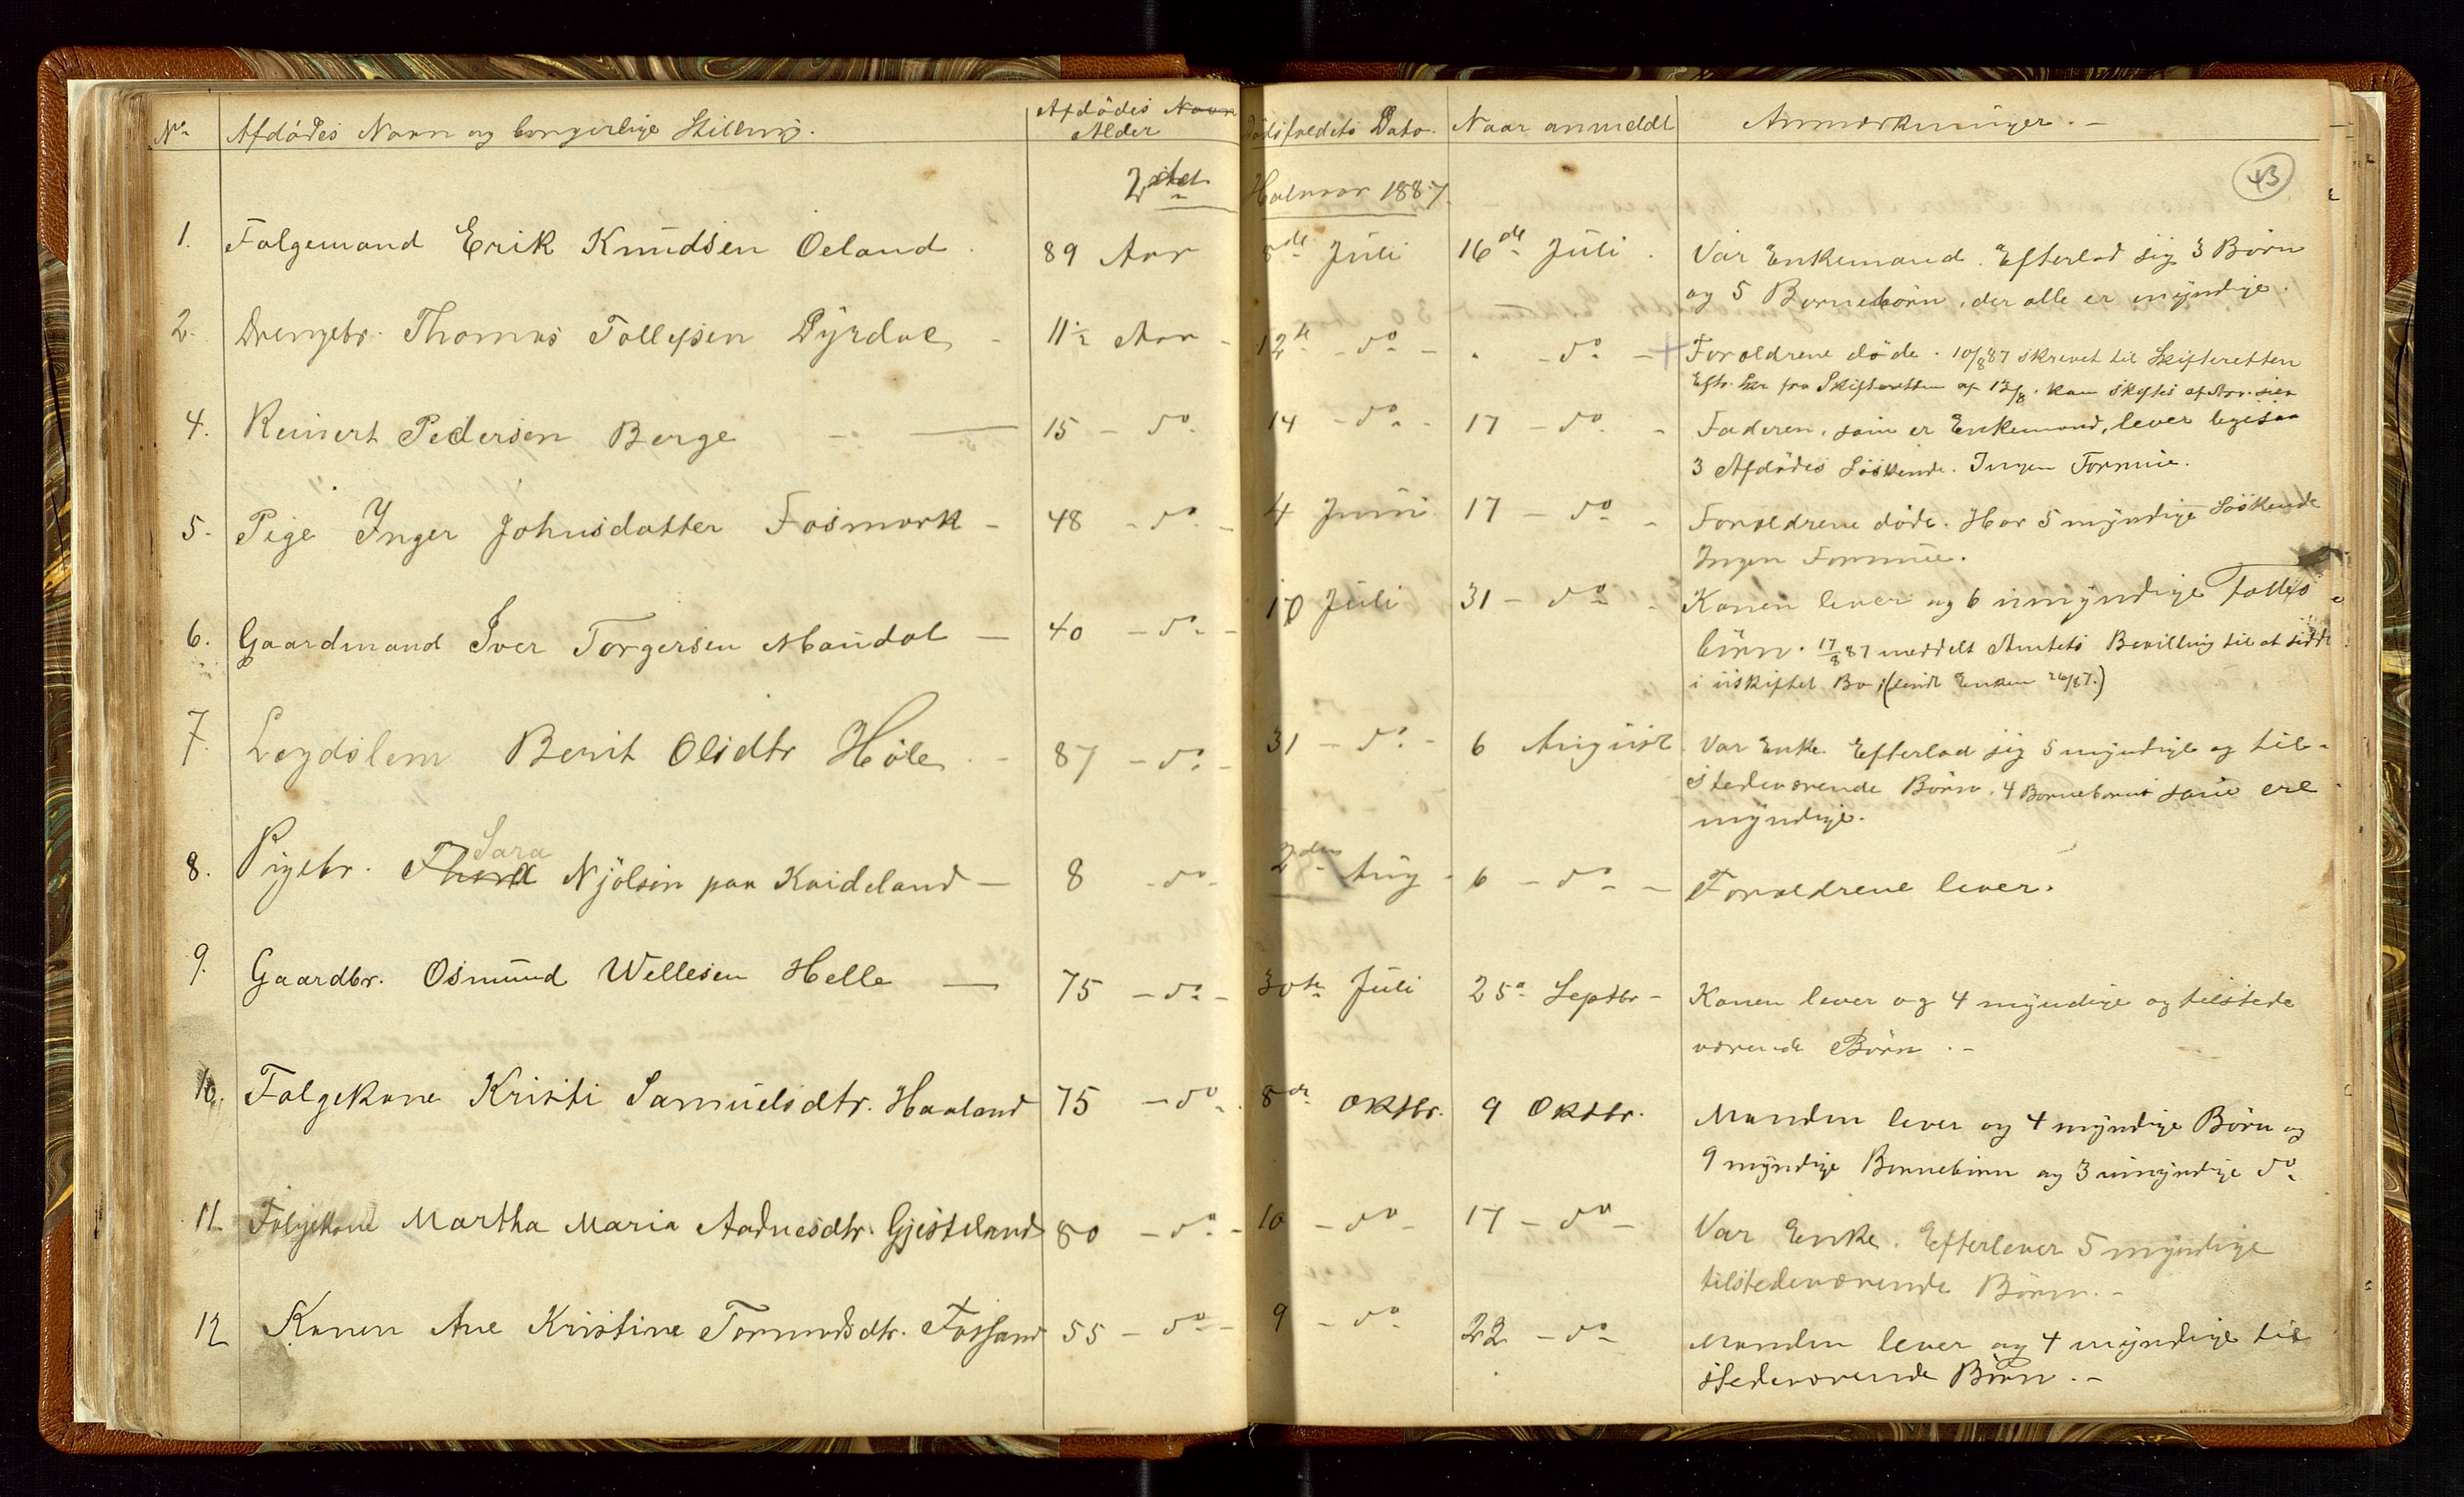 No. Afdödes Navn og borgerlige Stilling. Afdödes Navn Alder Dödsfaldets Dato. Naar anmeldt Anmærkninger. -
43
2det Halvaar 1887.
1. Folgemand Erik Knudsen Oeland. 89 Aar 8de Juli 16de Juli. Var Enkemand. Efterlod sig 3 Börn
og 5 Börnebörn, der alle er myndige.
2. Drengebr. Thomas Tollefsen Dyrdal - 11½ Aar - 12te - do - " - do - Forældrene döde. 10/8 87 skrevet til Skifteretten
Eftr. Skr fra Skifteretten af 12/8. kan skiftes
4. Reinert Pedersen Berge - 15 - do. 14 - do - 17 - do - Faderen, som er Enkemand, lever ligesaa
3 Afdödes Söskende. Ingen Formue.
5. Pige Inger Johnsdatter Fosmark - 48 - do - 4 Juni 17 - do - Forældrene döde. Har 5 myndige Söskende
Ingen Formue.
6. Gaardmand Iver Torgersen Maudal - 40 - do - 10 Juli 31 - do - Konen lever og 6 umyndige Fælles
börn. 17/8 87 meddelt Amtets Bevilling til at sidde
i uskiftet Bo (sendt Enken 26/8 87.)
7. Lægdslem Berit Olsdtr Höle. - 87 - do - 31 - do - 6 August. Var Enke. Efterlod sig 5 myndige og til-
stedeværende Börn. 4 Börnebörn som ere
myndige.
8. Pigebr. Sara Njölsen paa Kvideland - 8 - do - 2den Aug - 6 - do - Forældrene lever.
9. Gaardbr. Osmund Wellesen Helle - 75 - do - 30te Juli 25de Septbr - Konen lever og 4 myndige og tilstede
værende Börn. -
10. Folgekone Kristi Samuelsdtr. Haaland 75 - do - 8de Oktbr. 9 Oktbr. Manden lever og 4 myndige Börn og
9 myndige Börnebörn og 3 umyndige do
11. Folgekone Martha Maria Aadnesdtr. Gjesteland 80 - do - 10 - do - 17 - do - Var Enke. Efterlever 5 myndige
tilstedeværende Börn. -
12 Konen Ane Kristine Tormodsdtr. Fossand 55 - do - 9 - do 22 - do - Manden lever og 4 myndige til
stedeværende Börn. -